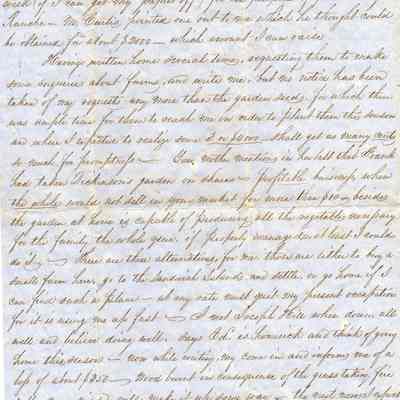 Ranche - Mr. Curtis pointed one out to me which he thought could
be obtained for about $2000 - which amount I can raise
Having written home several times, requesting them to make
some enquires about farms, and write me, but no notice has been
taken of my requests any more than the garden seeds, for which there
was ample time for them to reach me in order to plant them this season
and where I expected to realize some 3 or $6000 shall get as many cents
so much for promptness - Our mother mentions in her last that Frank
had taken Dickinson's garden on shares - profitable business when
the whole would not sell in your market for more than $10 - besides
the garden at home is capable of producing all the vegetables necessary
for the family the whole year, if properly managed, at least I could
do it - There are three alternatives for me these are either to buy a
small farm here, go to the Sandwich Islands and settle or go home if I
can find such a place - at any rate must quit my present occupation
for it is using me up fast - I met Joseph Hill when down, all
well and been doing well - says is homesick and think of going
home this season - now while writing, my come in and informs me of a
loss of about $250 - Wood burnt in consequence of the grass taking fire